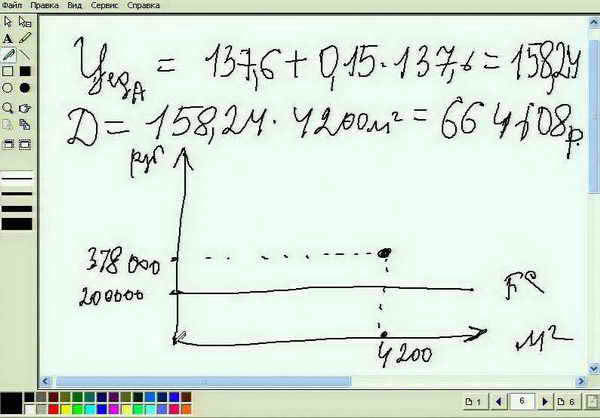 Файл Правка Вид Сервис Справка
Ц ед А = 137,6 + 0,15 · 137,6 = 158,24
Д = 158,24 · 4200м² = 664608р.
руб
378 000
200000
FC
4200
м²
1 6 6